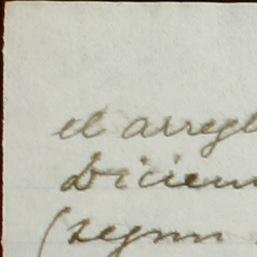 el arregl
Diciem
(segun